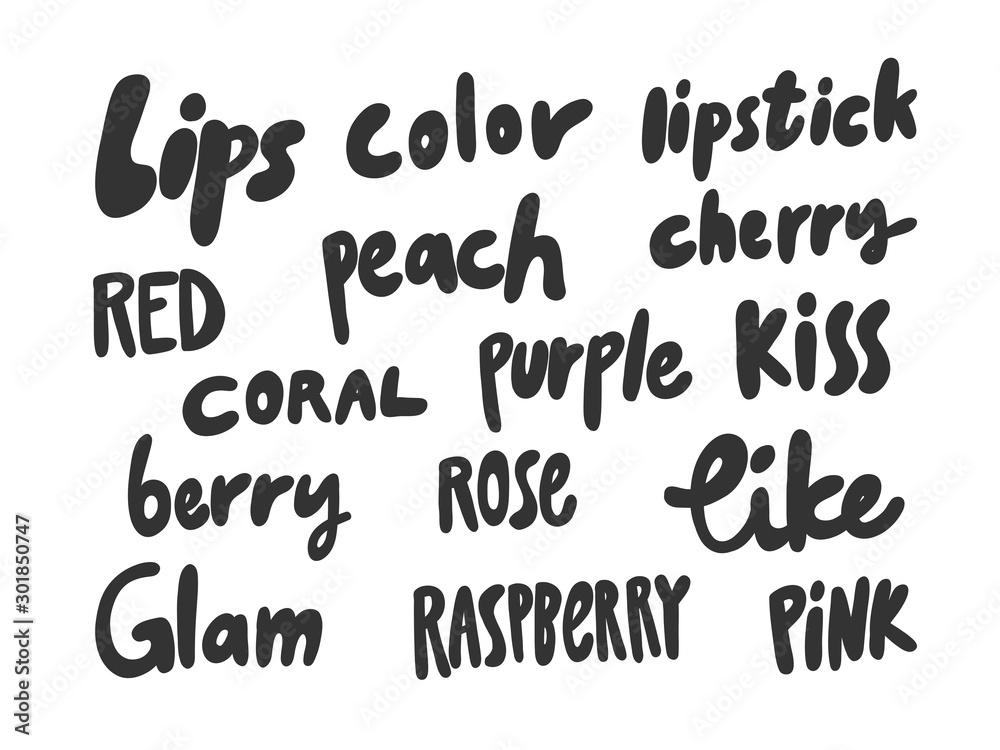 Lips color lipstick
peach cherry
RED
purple KiSS
CORAL
berry ROSE like
Glam RASPBERRY PiNK
Adobe Stock | #301850747